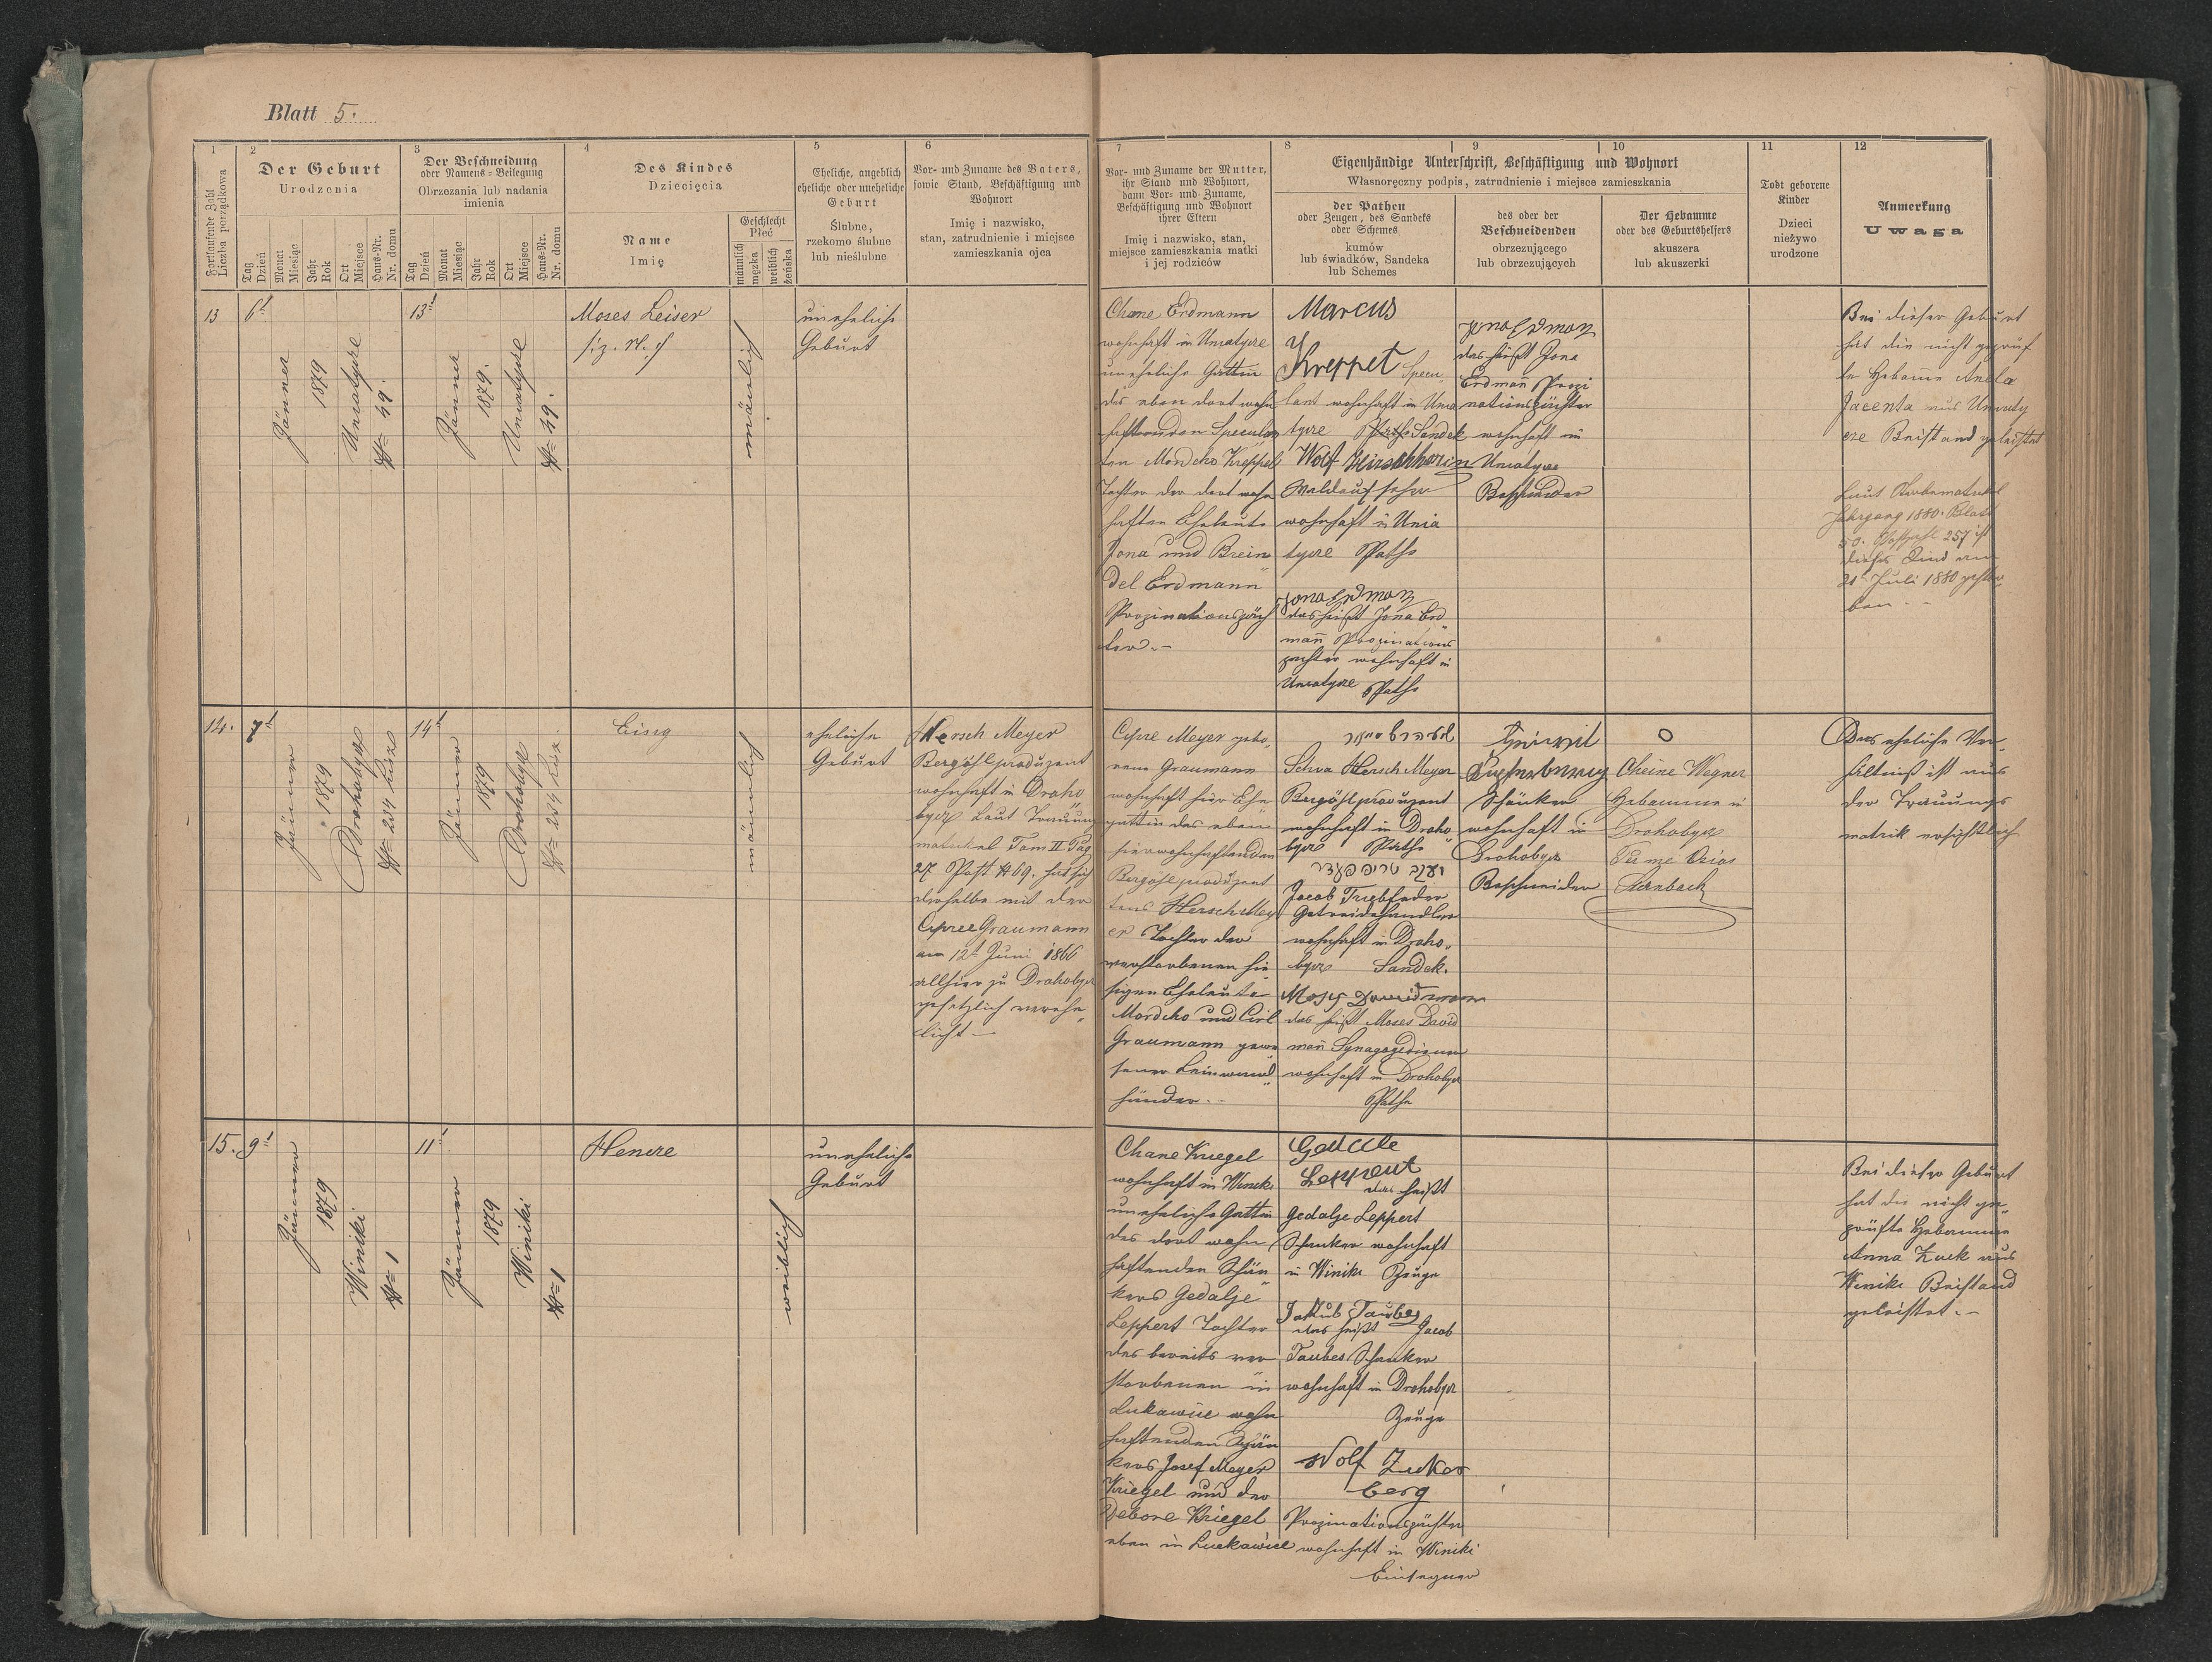 Blatt 5.
1
Fortlaufende Zahl
Liczba porządkowa
2
Der Geburt
Urodzenia
Tag
Dzień
Monat
Miesiąc
Jahr
Rok
Ort
Miejsce
Haus-Nr.
Nr. domu
3
Der Beschneidung
oder Namens-Beilegung
Obrzezania lub nadania
imienia
Tag
Dzień
Monat
Miesiąc
Jahr
Rok
Ort
Miejsce
Haus-Nr.
Nr. domu
4
Des Kindes
Dziecięcia
Name
Imię
Geschlecht
Płeć
männlich
męzka
weiblich
żeńska
5
Eheliche, angeblich
eheliche oder uneheliche
Geburt
Ślubne,
rzekomo ślubne
lub nieślubne
6
Vor- und Zuname des Vaters,
sowie Stand, Beschäftigung und
Wohnort
Imię i nazwisko,
stan, zatrudnienie i miejsce
zamieszkania ojca
7
Vor- und Zuname der Mutter,
ihr Stand und Wohnort,
dann Vor- und Zuname,
Beschäftigung und Wohnort
ihrer Eltern
Imię i nazwisko, stan,
miejsce zamieszkania matki
i jej rodziców
8
9
10
Eigenhändige Unterschrift, Beschäftigung und Wohnort
Własnoręczny podpis, zatrudnienie i miejsce zamieszkania
der Pathen
oder Zeugen, des Sandeks
oder Schemes
kumów
lub świadków, Sandeka
lub Schemes
des oder der
Beschneidenden
obrzezującego
lub obrzezujących
Der Hebamme
oder des Geburtshelfers
akuszera
lub akuszerki
11
Todt geborene
Kinder
Dzieci
nieżywo
urodzone
12
Anmerkung
Uwaga
13
6t
Jänner
1879
Uniatycze
No 49.
13t
Jänner
1879.
Uniatycze
No 49.
Moses Leiser
männlich
uneheliche
Geburt
Chane Erdmann
wohnhaft in Uniatycze
uneheliche Gattin
des eben dort wohn
haftenden Speculan
ten Mordcho Kreppel
Tochter der dort wohn
haften Eheleute
Jona und Brein
del Erdmann
Propinationspäch
ter.-
Marcus
Kreppel Specu
lant wohnhaft in Unia
tycze Sandek
Wolf Hirschhorn
Waldaufseher
wohnhaft in Unia
tycze Pathe
Jona Erdman
das heißt Jona Erd
mann Propinations
pachter wohnhaft in
Uniatycze Pathe
Jona Erdman
das heißt Jona
Erdmann Propi
nationspächter
wohnhaft in
Uniatycze
Beschneider
Bei dieser Geburt
hat die nicht geprüf
te Hebamme Anela
Jacenta aus Uniaty
cze Beistand geleistet
Laut Sterbematrikel
Jahrgang 1880. Blatt
50. Postzahl 257 ist
dieses Kind am
21t Juli 1880 gestor
ben.-
14.
7t
Jänner
1879
Drohobycz
No 234
14t
Jänner
1879
Drohobycz
No 234
Eisig
männlich
eheliche
Geburt
Hersch Meyer
Bergöhlproduzent
wohnhaft in Droho
bycz Laut Trauungs
matrikel Tom II Pag
27 Post No 69. hat sich
derselbe mit der
Cipre Graumann
am 12t Juni 1866
allhier zu Drohobycz
gesetzlich vereh
licht
Cipre Meyer gebo
rene Graumann
wohnhaft hier Ehe
gattin des eben
hierwohnhaftenden
Bergöhlproduzen
tens Hersch Mey
er Tochter der
verstorbenen hie
sigen Eheleute
Mordcho und Cirl
Graumann gewe
sener Leinwand
händer.-
Hersch Meyer
Bergöhlproduzent
wohnhaft in Droho
bycz Pathe
יעקב טריפפעדר
Jacob Triebfeder
Getreidehandler
wohnhaft in Droho
bycz Sandek.
Moses Dawidmann
das heißt Moses David
mann Synagogediener
wohnhaft in Drohobycz
Pathe
Schänker
wohnhaft in
Drohobycz
Beschneider
Cheine Wegner
Hebamme in
Drohobycz
Sternbach
Das eheliche Ver
hältniß ist aus
der Trauungs
matrik ersichtlich
15.
9t
Jänner
1879
Winiki
No 1
11t
Jänner
1879
Winiki
No 1
Hencze
weiblich
uneheliche
Geburt
Chane Kriegel
wohnhaft in Winiki
uneheliche Gattin
des dort wohn
haftenden Schän
kers Gedalje
Leppert Tochter
des bereits ver
storbenen in
Lukawice wohn
haftenden Schän
kers Josef Meyer
Kriegel und der
Debore Kriegel
eben in Luckawice
Gedale
Leppert
das heißt
Gedalje Leppert
Schanker wohnhaft
in Winiki Zeuge
Jakub Taubes
das heißt Jacob
Taubes Schanker
wohnhaft in Drohobycz
Zeuge
Wolf Zucker
berg
Propinationspächter
wohnhaft in Winiki
Einsegner
Bei dieser Geburt
hat die nicht ge
prüfte Hebamme
Anna Zuck aus
Winiki Beistand
geleistet.-